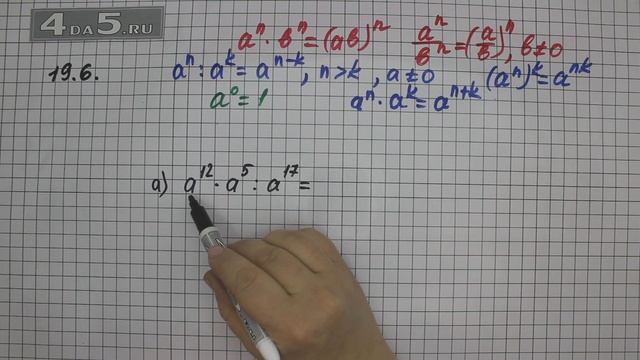 4DA5.RU
aⁿ · bⁿ = (ab)ⁿ   aⁿ/bⁿ = (a/b)ⁿ, b≠0
19.6.   aⁿ : aᵏ = aⁿ⁻ᵏ, n>k, a≠0   (aⁿ)ᵏ = aⁿᵏ
a⁰ = 1   aⁿ · aᵏ = aⁿ⁺ᵏ
а) a¹² · a⁵ : a¹⁷ =